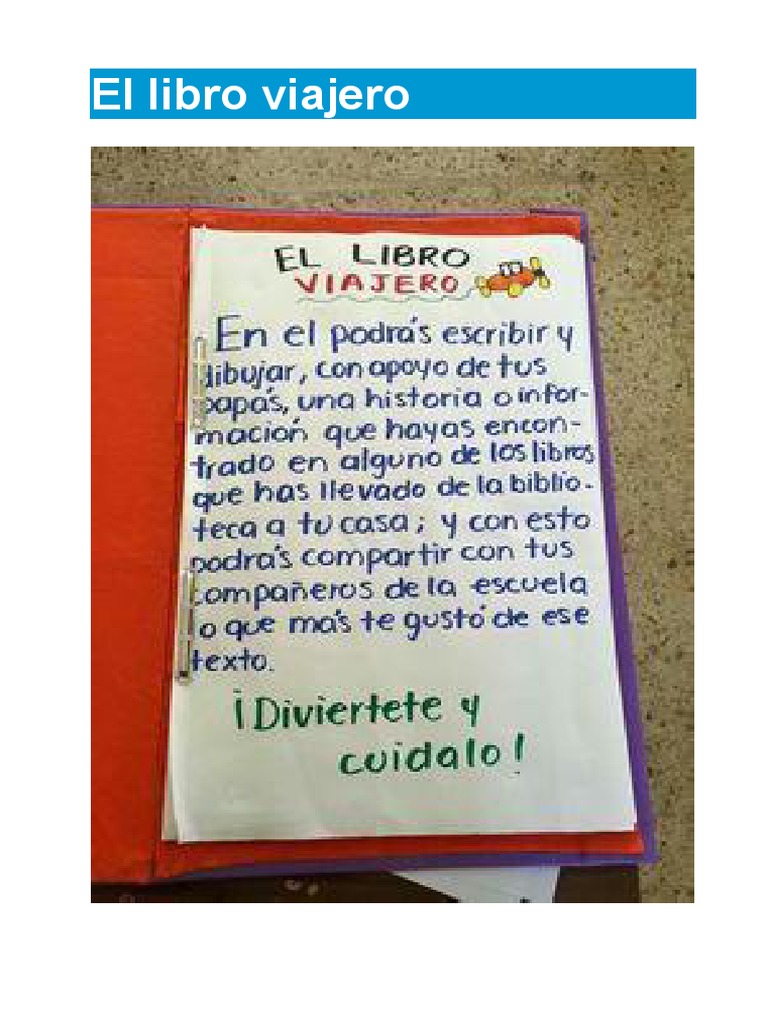 El libro viajero
EL LIBRO
VIAJERO
En el podrás escribir y
dibujar, con apoyo de tus
papás, una historia o infor-
mación que hayas encon-
trado en alguno de los libros
que has llevado de la biblio-
teca a tu casa; y con esto
podrás compartir con tus
compañeros de la escuela
lo que más te gustó de ese
texto.
¡Diviertete y
cuidalo!